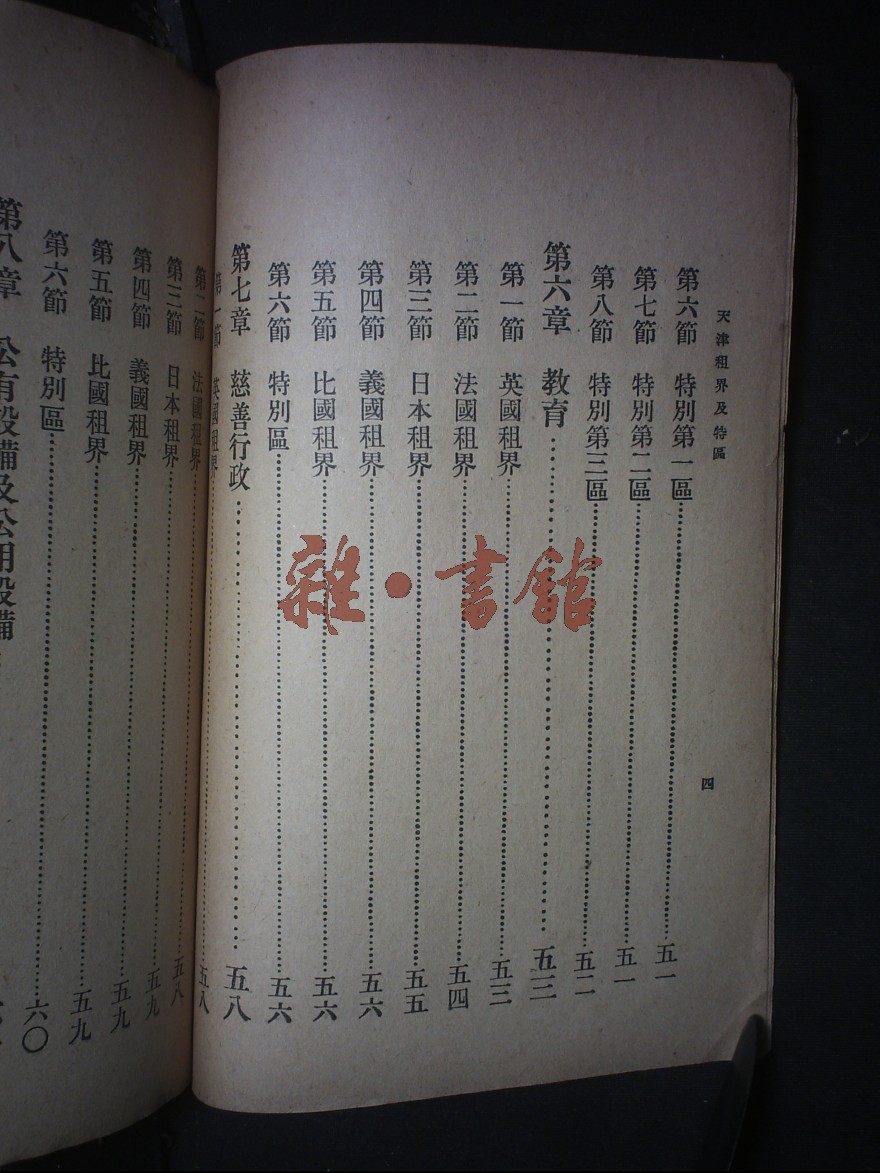 天津租界及特區 四
第六節 特別第一區……五一
第七節 特別第二區……五一
第八節 特別第三區……五二
第六章 教育……五三
第一節 英國租界……五三
第二節 法國租界……五四
第三節 日本租界……五五
第四節 義國租界……五六
第五節 比國租界……五六
第六節 特別區……五六
第七章 慈善行政……五八
第一節 英國租界……五八
第二節 法國租界……五八
第三節 日本租界……五九
第四節 義國租界……五九
第五節 比國租界……五九
第六節 特別區……六〇
第八章 公有設備及公用設備……
雜·書館